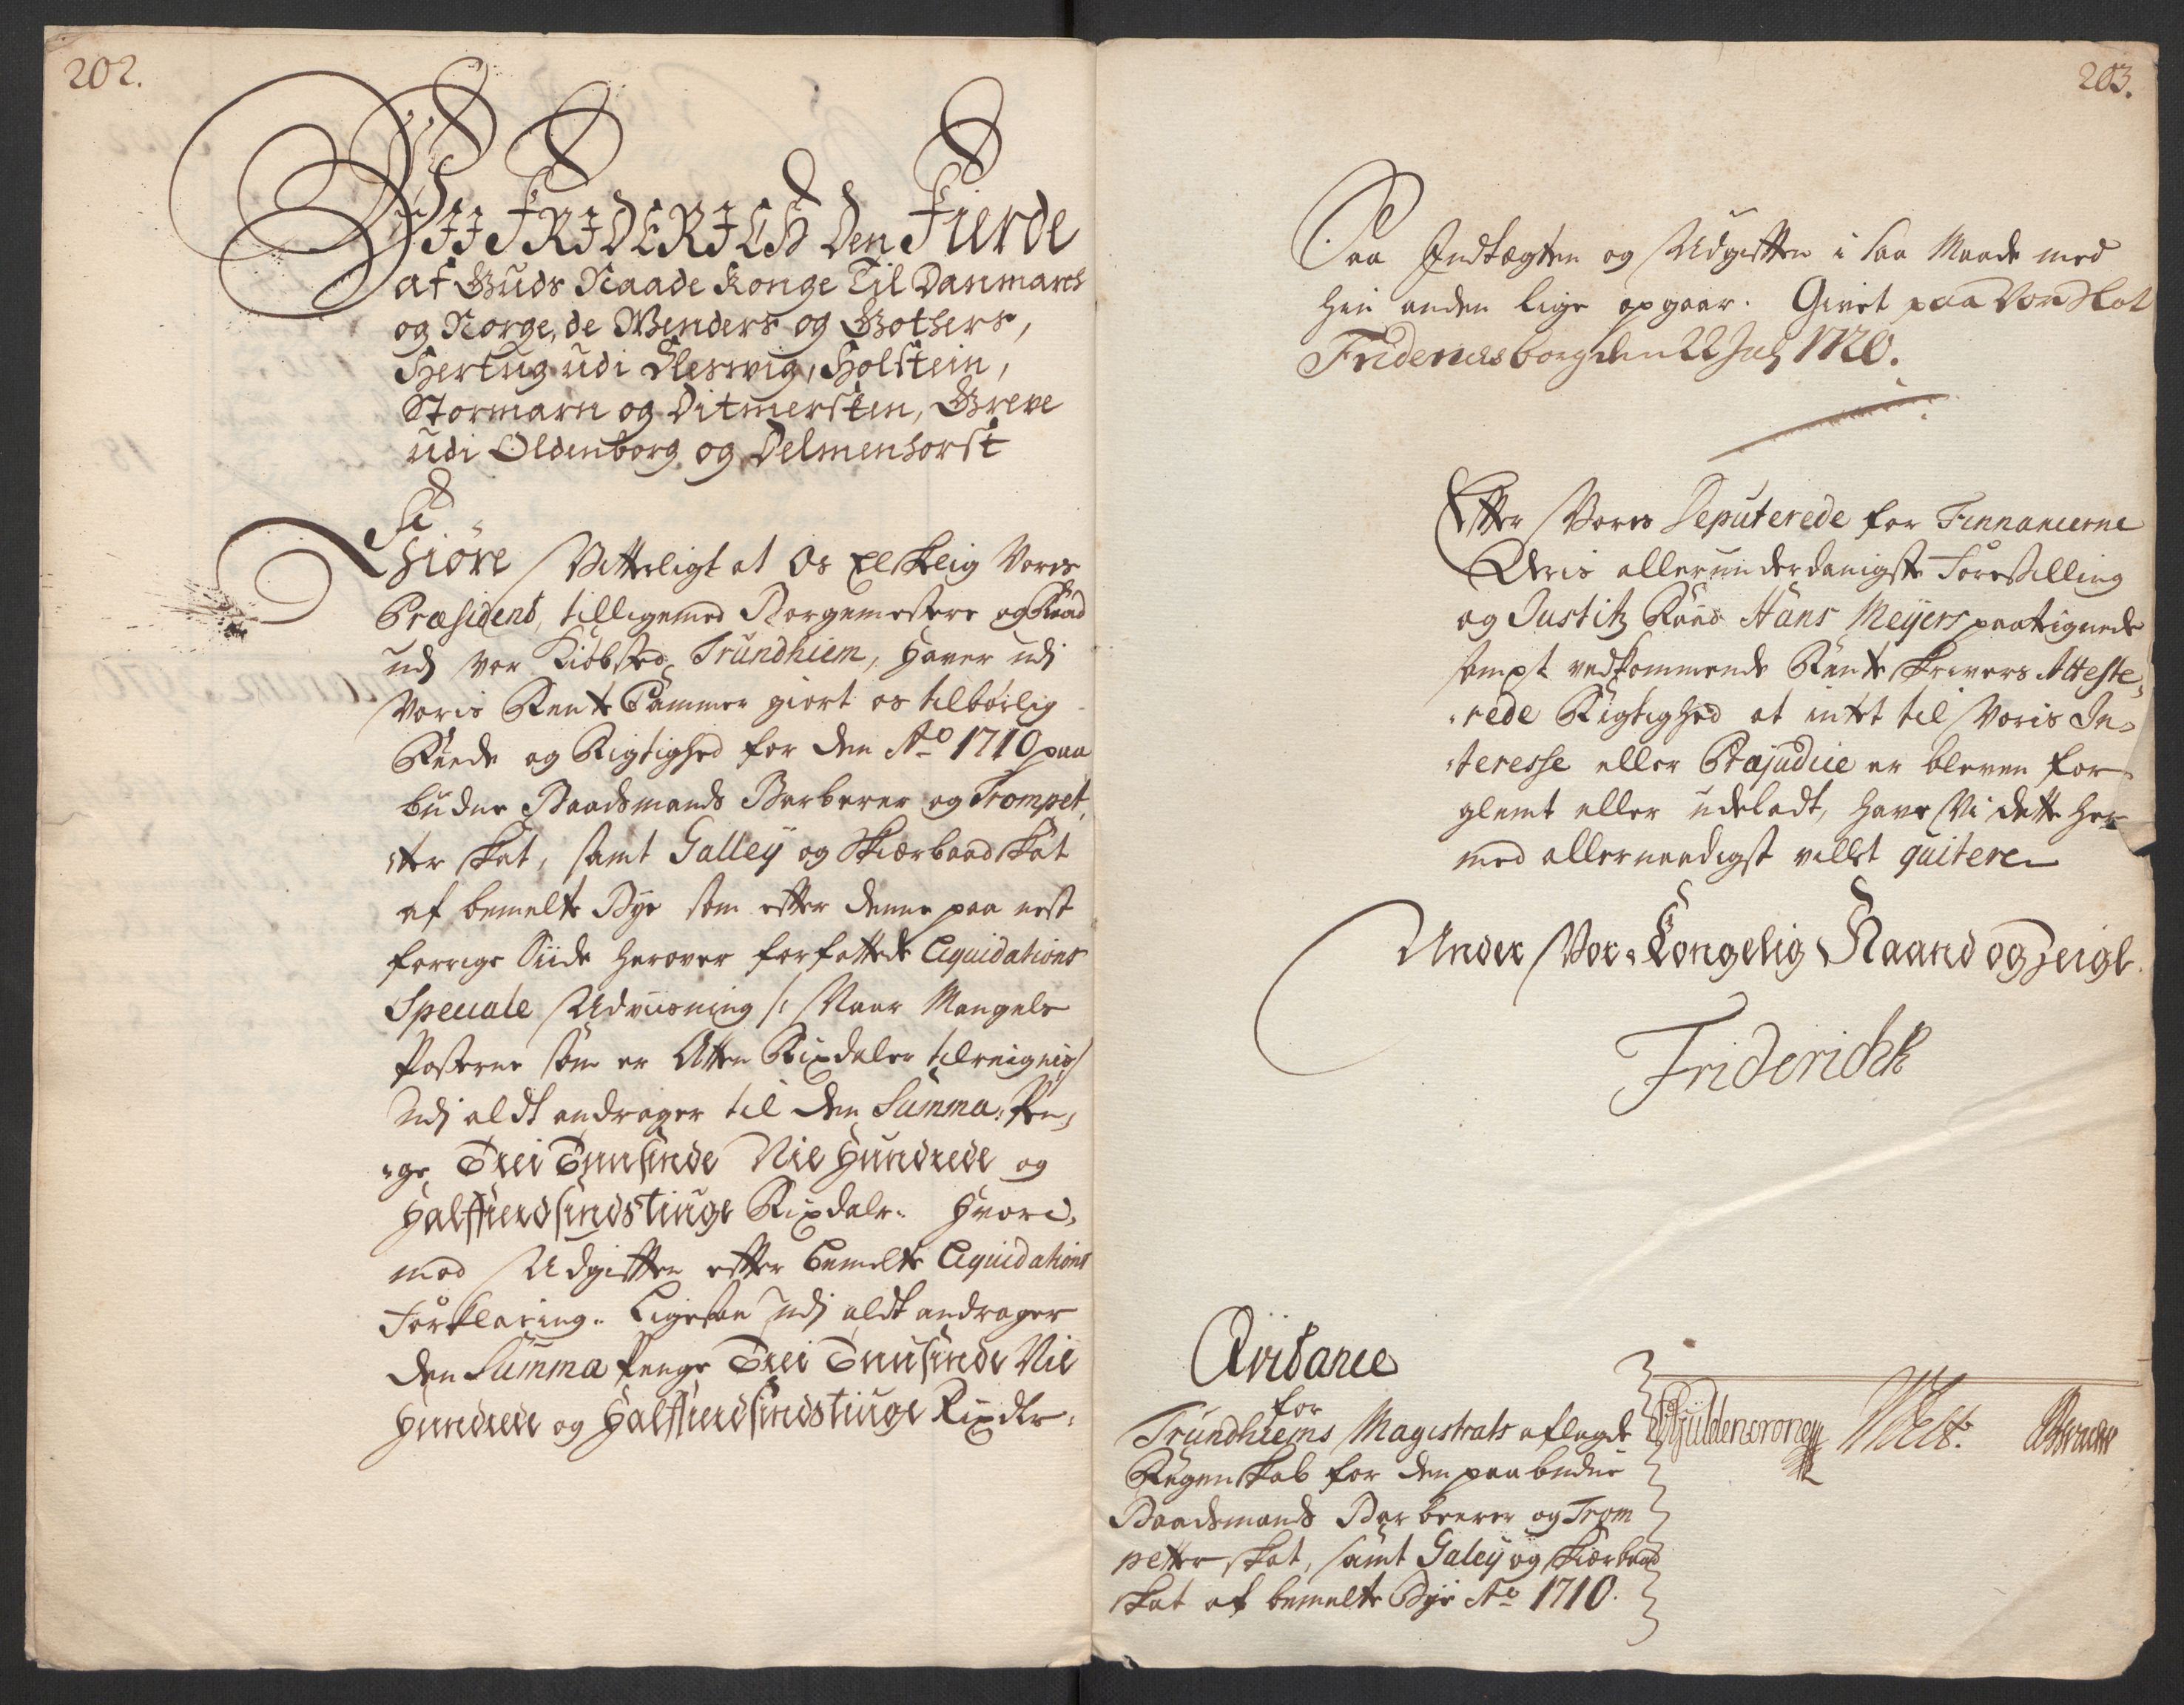 202.
VII FRIDERICH Den Fierde
af Guds Naade Konge Til Danmarck
og Norge, de Wenders og Gothers,
Hertug udi Slesvig, Holstein,
Stormarn og Ditmersken, Greve
udi Oldenborg og Delmenhorst
Giøre Vitterligt at Os Elskelig Voris
Præsident, tilligemed Borgemestere og Raad
udj vor Kiøbsted Trundhiem, haver udj
Voris Rente Cammer giort os tilbørlig
Reede og Rigtighed for den Ao 1710 paa
budne Baadsmands Barberer og Trompet,
ter skat, samt Galley og Skiærbaad skat
af bemelte Bye som efter denne paa nest
forrige Siide herover forfattede Liquidations
Speciale Udviisning /: Naar Mangels
Posterne som er Atten Rixdaler tilreignis/
udj aldt andrager til den Summa Pen,
"ge Trei Tuusinde Nie Hundrede og
Halffierdsindstiuge Rixdalr. Hvori,
mod Udgifften effter bemelte Liquidations
Forklaring. Ligesaa udj aldt andrager
den Summa Penge Trei Tuusinde Nie
Hundrede og Halffierdsindstiuge Rixdlr.
203.
Saa Indtægten og Udgiften i saa Maade med
hin anden lige opgaar. Givet paa Vor Slot
Friderichsborg den 22 Julj 1720.
Efter Voris Deputerede for Finnancierne
Deris allerunderdanigste Forestilling
og Justitz Raad Hans Meyers paategnede
sampt vedkommende Rente skrivers Atteste,
"rede Rigtighed at intet til Voris In,
"teresse eller Præjudice er bleven for,
glemt eller udeladt, have Vi dette her
med allernaadigst villet quitere
Under Vor Kongelig Haand og Zeigl.
Friderich R
Qvitance
for
Trundhiems Magistrats aflagde
Regenskab for den paabudne
Baadsmands Barbeerer og Trom
petter skat, samt Galey og Skiærbaad
skat af bemelte Bye Ao 1710.
CGüldencrone